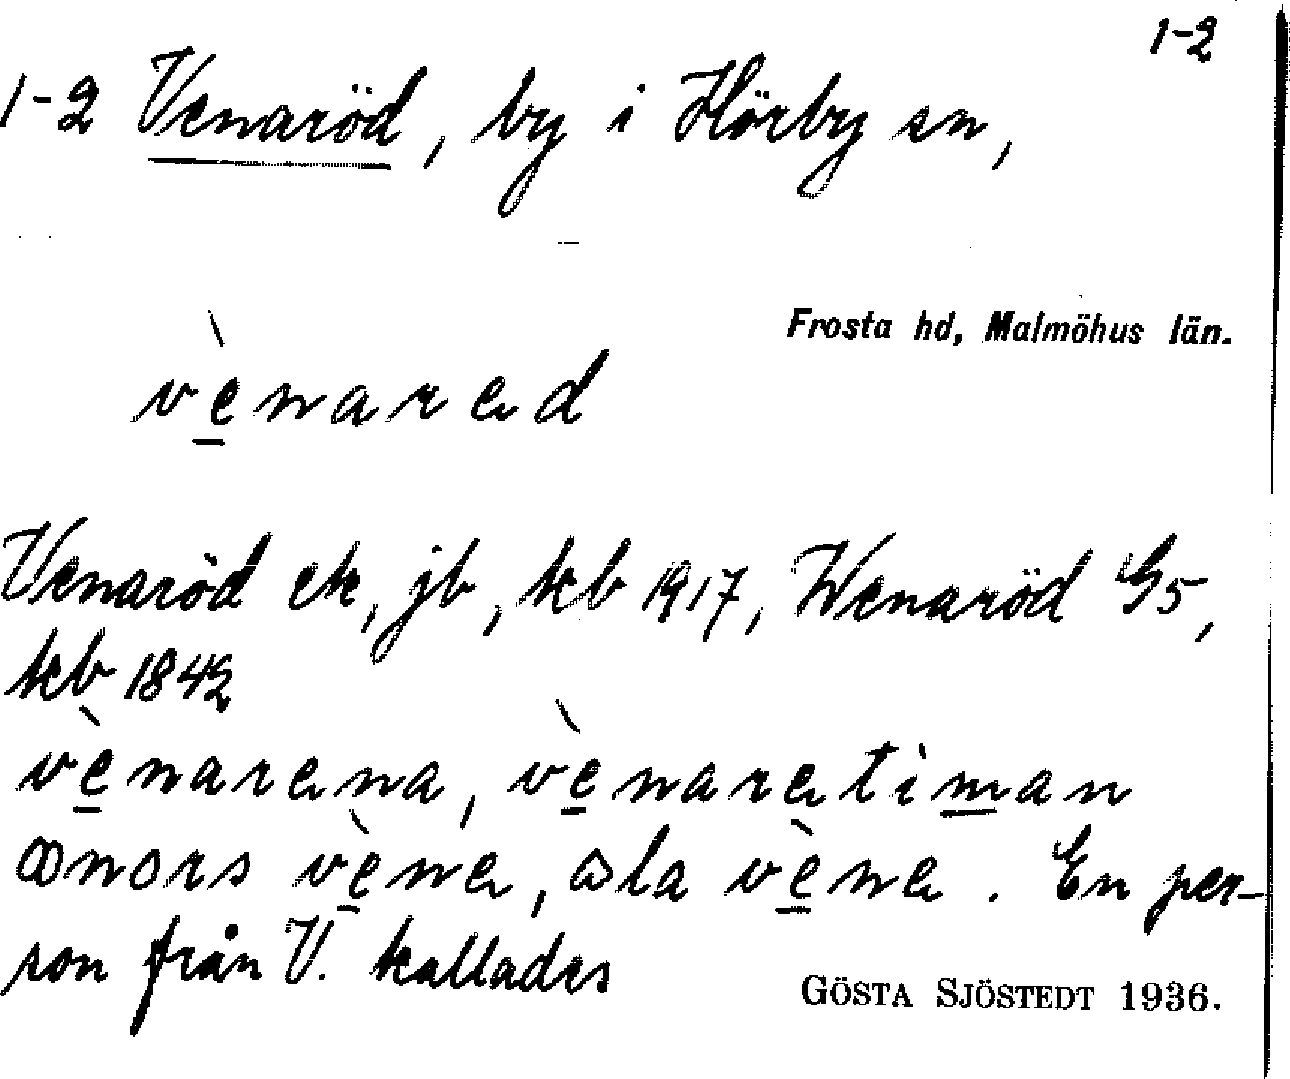 1-2
1-2 Venaröd, by i Hörby sn,
Frosta hd, Malmöhus län.
vènared
Venaröd ek, jb, kb 1917, Wenaröd G5,
kb 1842
vènarena, vènaretiman
ꝏnors vène, ɷla vène. En per-
son från V. kallades
GÖSTA SJÖSTEDT 1936.